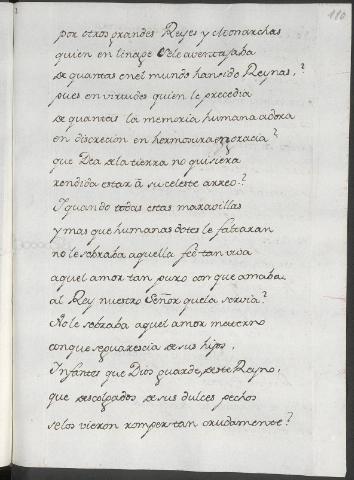 110
por otros grandes Reyes y Monarchas
quien en linage se le aventajaba
de quantas en el mundo han sido Reynas,?
pues en virtudes quien le precedia
de quantas la memoria humana adora
en discrecion en hermosura en gracia?
que Dea de la tierra no quisiera
rendida estar â su celeste arreo?
I quando todas estas maravillas
y mas que humanas dotes le faltaran
no le sobraba aquella feê tan viva
aquel amor tan puro con que amaba
al Rey nuestro Señor que la servia?
No le sobraba aquel amor materno
con que se guarescia de sus hijos,
Infantes que Dios guarde, de este Reyno,
que descolgados de sus dulces pechos
se los vieron romper tan crudamente?